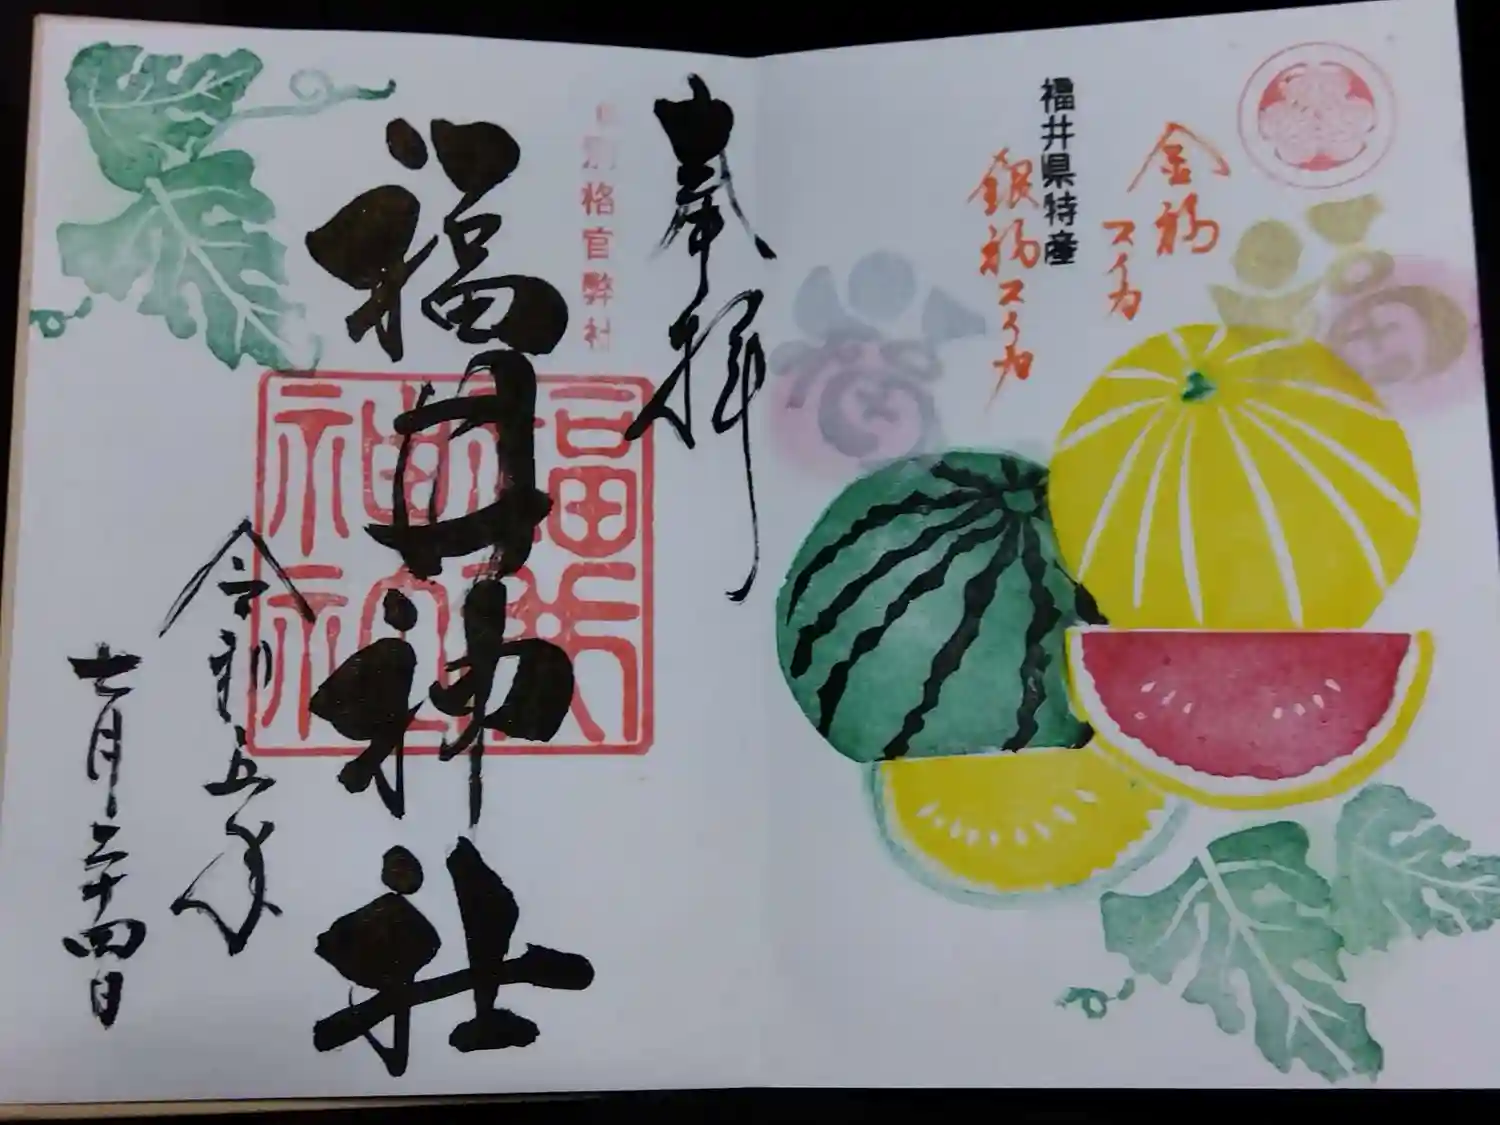 福井県特産
金福スイカ
銀福スイカ
奉拝
別格官弊社
福井神社
福井神社
令和五年
七月二十四日